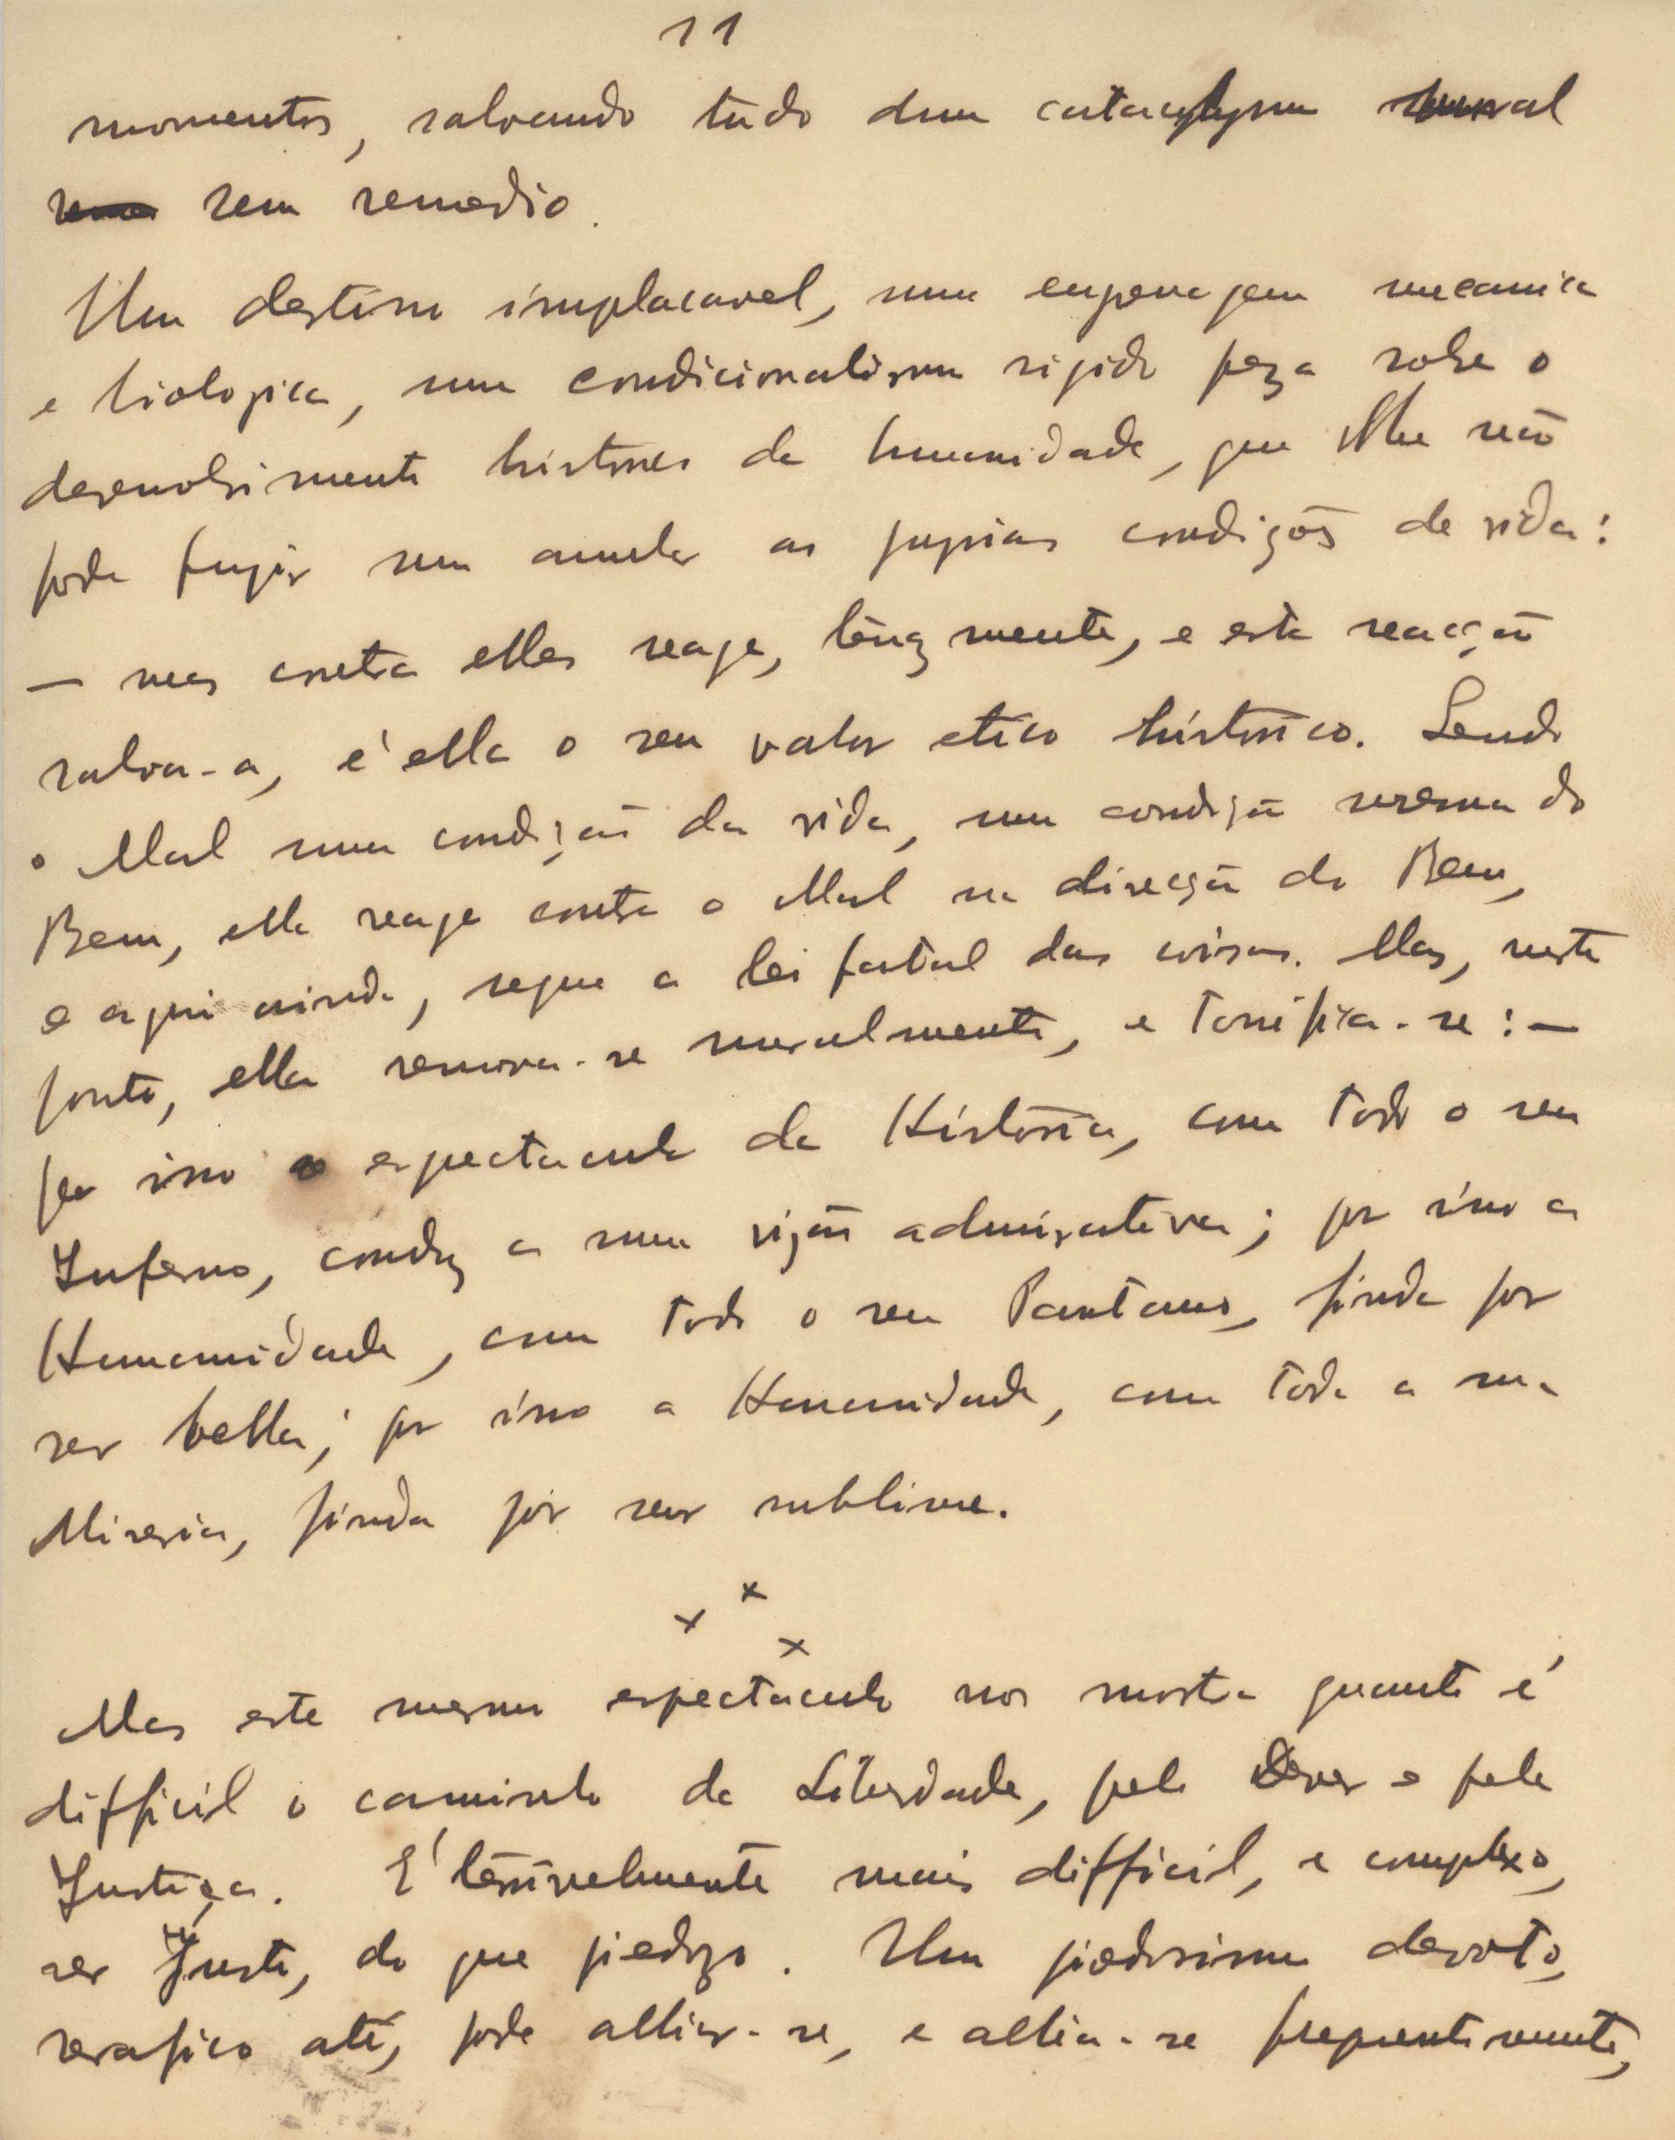 11
momentos, salvando tudo dum cataclysmo moral
sem remedio.
Um destino implacavel, uma engrenagem mecanica
e biologica, um condicionalismo rigido peza sobre o
desenvolvimento historico da humanidade, que ella não
pode fugir sem anular as proprias condições de vida:
— mas contra elles reage, tenazmente, e esta reacção
salva-a, é ella o seu valor etico historico. Sendo
o Mal uma condição da vida, uma condição mesma do
Bem, ella reage contra o Mal na direcção do Bem,
e aqui ainda, segue a lei fatal das coisas. Mas, neste
ponto, ella renova-se moralmente, e tonifica-se: —
por isso o espectaculo da Historia, com todo o seu
Inferno, conduz a uma vizão admirativa; por isso a
Humanidade, com todo o seu Pantano, finda por
ser bella; por isso a Humanidade, com toda a sua
Miseria, finda por ser sublime.
x x x
Mas este mesmo espectaculo nos mostra quanto é
difficil o caminho da Liberdade, pelo Dever e pela
Justiça. E' terrivelmente mais difficil, e complexo,
ser Justo, do que piedozo. Um piedosismo devoto,
serafico até, pode alliar-se, e allia-se frequentemente,